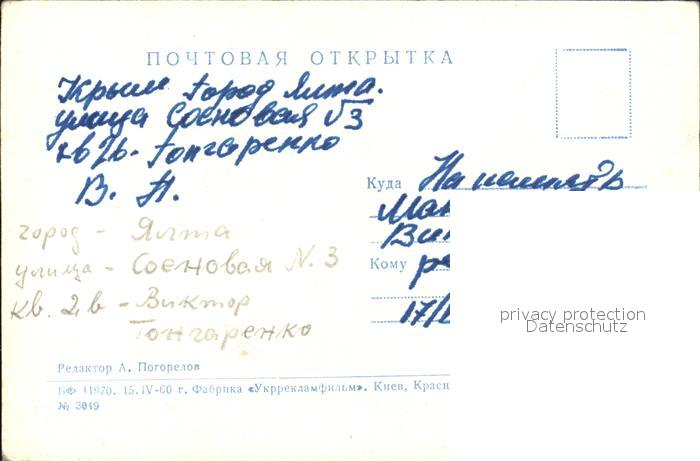 ПОЧТОВАЯ ОТКРЫТКА
Крым город Ялта.
улица Сосновая √3
кв 2в. Гонгаренко
В. Н.
Куда На память
Кому
17/
город - Ялта
улица - Сосновая N. 3
кв. 2,в - Виктор
Гонгаренко
privacy protection
Datenschutz
Редактор А. Погорелов
БФ 11970. 15.IV-60 г. Фабрика «Укррекламфильм». Киев, Красн
№ 3049